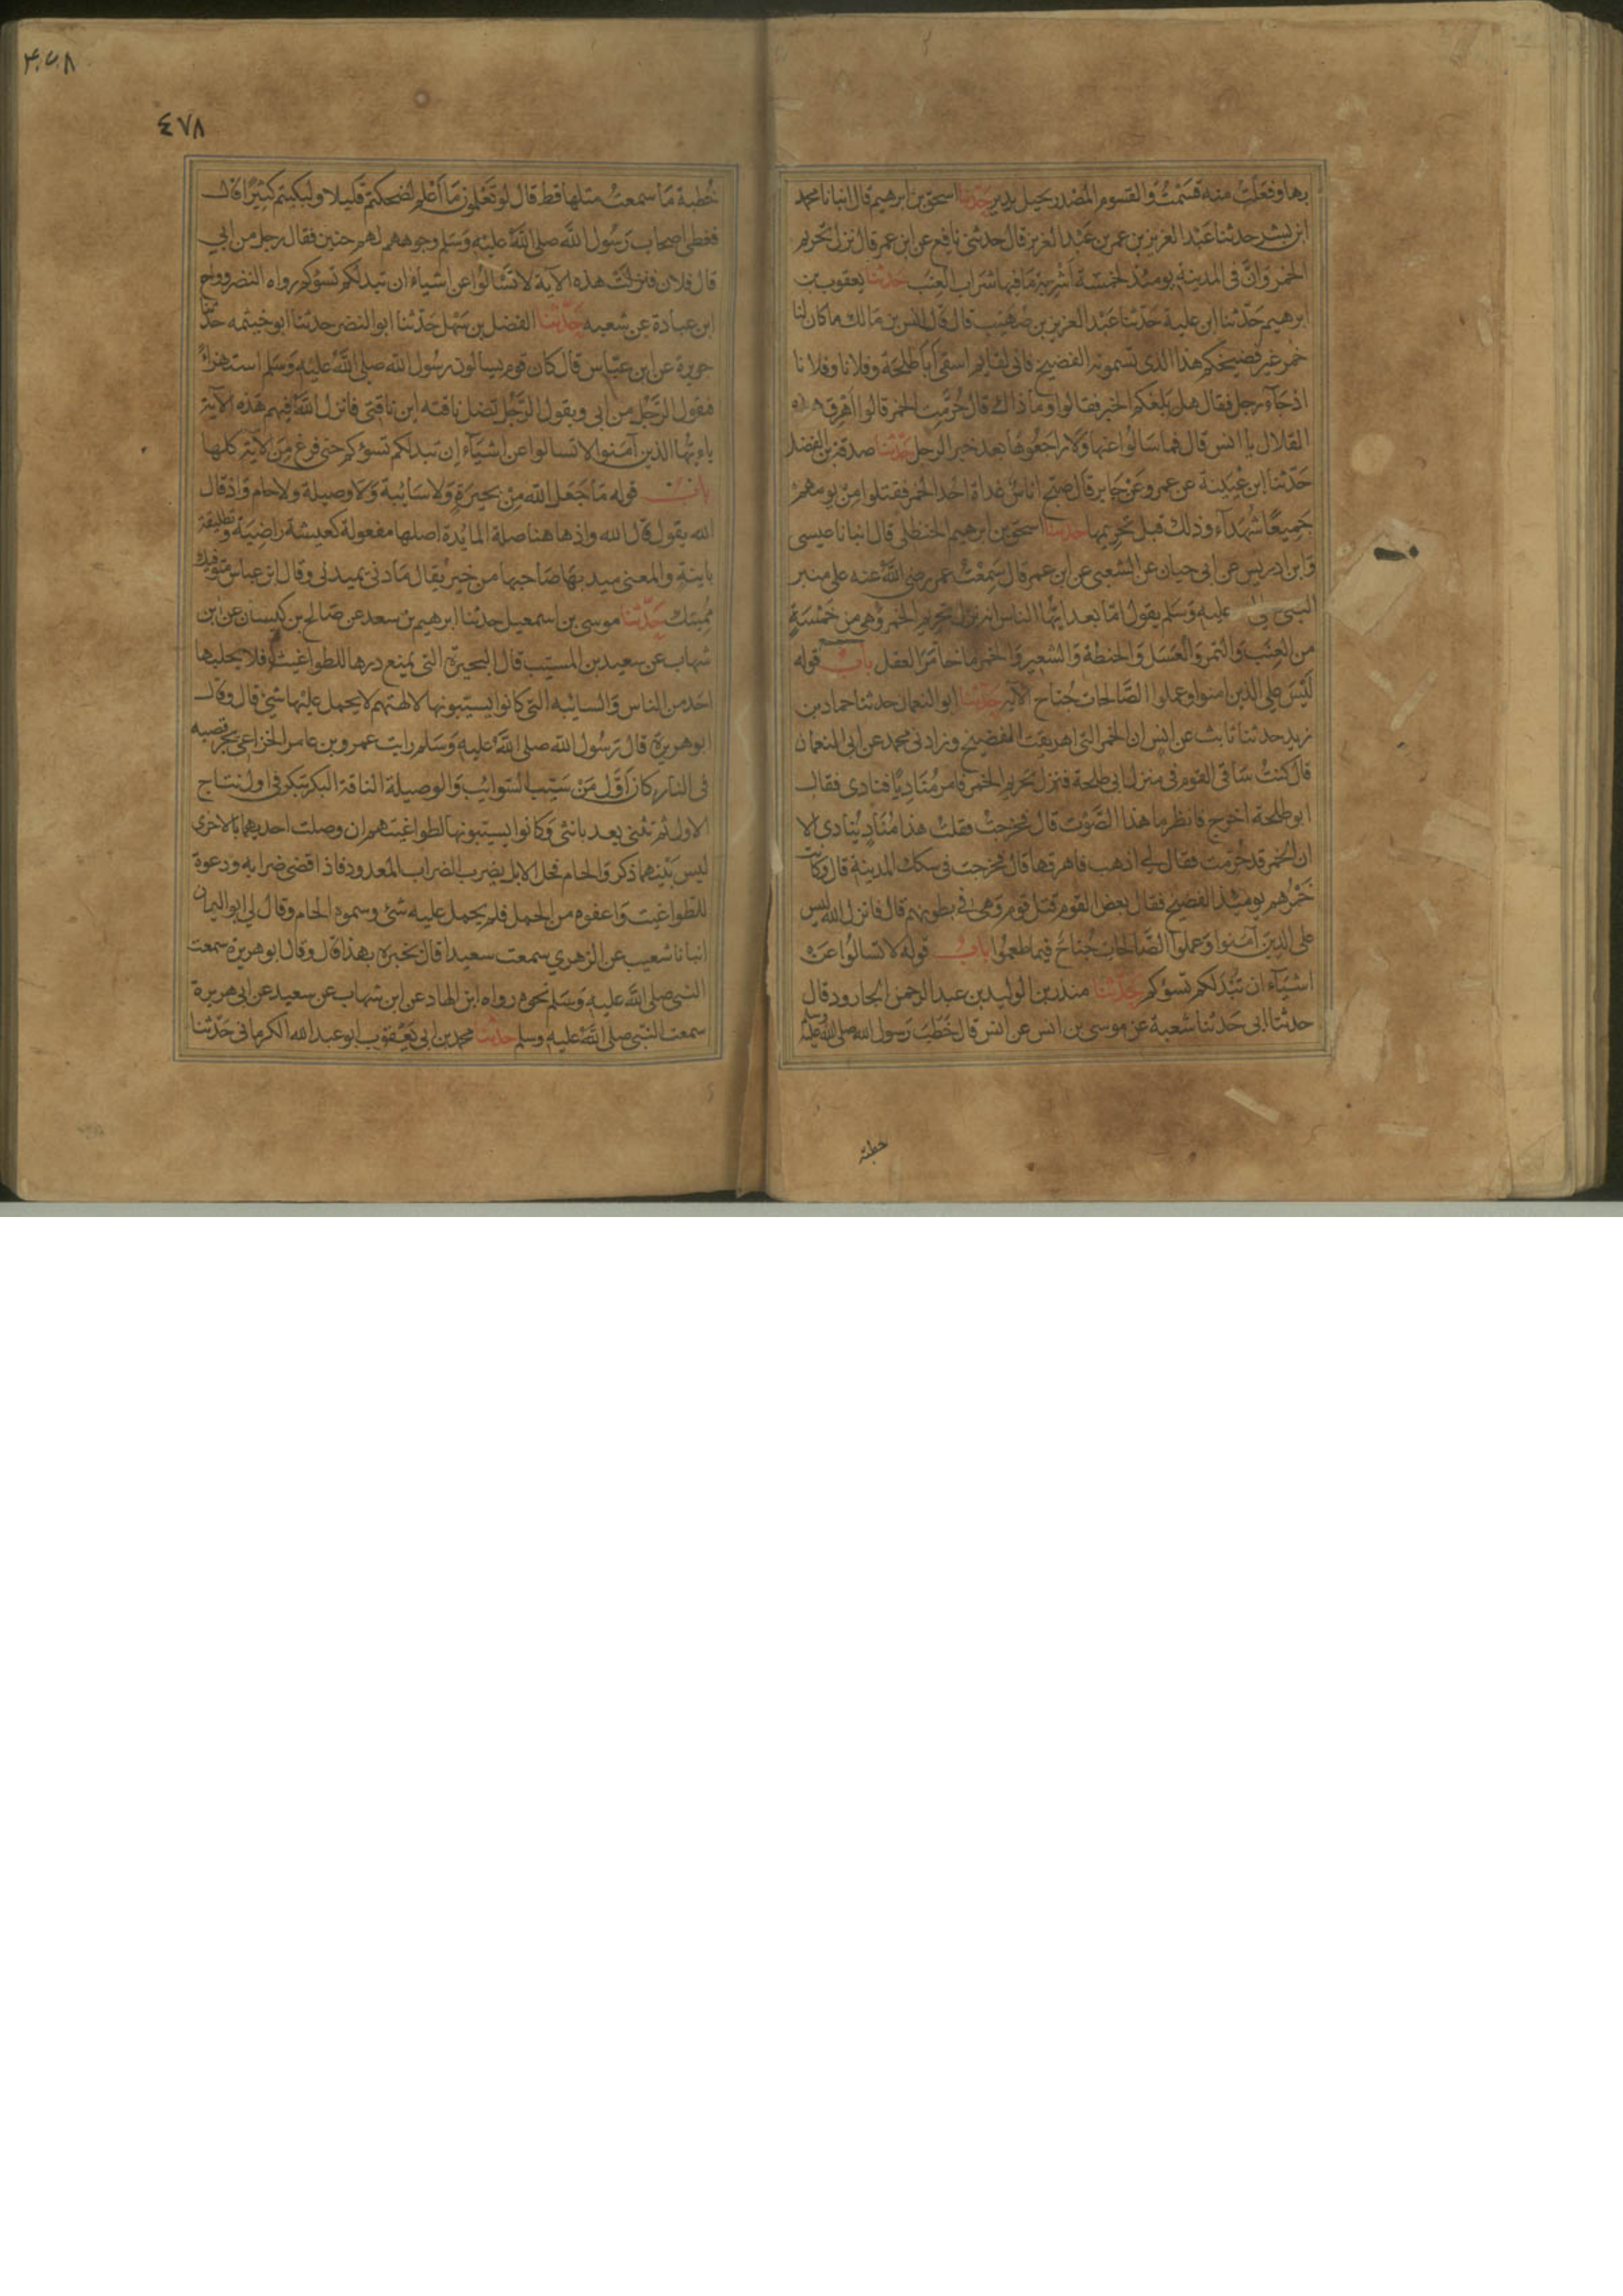 بها وفعلت منه قسمت والقسوم المصدر يجيل يدير حدثنا اسحق بن ابرهيم قال انبانا محمد
ابن بشر حدثنا عبد العزيز بن عمر بن عبد العزيز قال حدثني نافع عن ابن عمر قال نزل تحريم
الخمر وان في المدينة يومئذ لخمسة اشربة ما فيها شراب العنب حدثنا يعقوب بن
ابرهيم حدثنا ابن علية حدثنا عبد العزيز بن صهيب قال قال انس بن مالك ما كان لنا
خمر غير فضيخكم هذا الذي تسمونه الفضيخ فاني لقايم اسقي ابا طلحة وفلانا وفلانا
اذ جاء رجل فقال هل بلغكم الخبر فقالوا وما ذاك قال حرمت الخمر قالوا اهرق هذه
القلال يا انس قال فما سالوا عنها ولا راجعوها بعد خبر الرجل حدثنا صدقة بن الفضل
حدثنا ابن عيينة عن عمرو عن جابر قال صبح اناس غداة احد الخمر فقتلوا من يومهم
جميعا شهداء وذلك قبل تحريمها حدثنا اسحق بن ابرهيم الحنظلي قال انبانا عيسى
وابن ادريس عن ابي حيان عن الشعبي عن ابن عمر قال سمعت عمر رضي الله عنه على منبر
النبي عليه وسلم يقول اما بعد ايها الناس انه نزل تحريم الخمر وهي من خمسة
من العنب والتمر والعسل والحنطة والشعير والخمر ما خامر العقل باب قوله
ليس على الذين امنوا وعملوا الصالحات جناح الآية حدثنا ابو النعمان حدثنا حماد بن
زيد حدثنا ثابث عن انس ان الخمر التي اهريقت الفضيخ وزادني محمد عن ابي النعمان
قال كنت ساقي القوم في منزل ابي طلحة فنزل تحريم الخمر فامر مناديا فنادى فقال
ابو طلحة اخرج فانظر ما هذا الصوت قال فخرجت فقلت هذا مناد ينادي الا
ان الخمر قد حرمت فقال لي اذهب فاهرقها قال فخرجت في سكك المدينة قال وكانت
خمرهم يومئذ الفضيخ فقال بعض القوم قتل قوم وهي في بطونهم قال فانزل الله ليس
على الذين آمنوا وعملوا الصالحات جناح فيما طعموا باب قوله لا تسالوا عن
اشياء ان تبد لكم تسؤكم حدثنا منذر بن الوليد بن عبد الرحمن الجارود قال
حدثنا ابي حدثنا شعبة عن موسى بن انس عن انس قال خطب رسول الله صلى الله عليه وسلم
خطبة
٤٧٨
٤٧٨
خطبة ما سمعت مثلها قط قال لو تعلمون ما اعلم لضحكتم قليلا ولبكيتم كثيرا قال
فغطى اصحاب رسول الله صلى الله عليه وسلم وجوههم لهم حنين فقال رجل من ابي
قال فلان فنزلت هذه الآية لا تسالوا عن اشياء ان تبد لكم تسؤكم رواه النضر وروح
ابن عبادة عن شعبه حدثنا الفضل بن سهل حدثنا ابو النضر حدثنا ابو خيثمه حدثنا
جويرة عن ابن عباس قال كان قوم يسالون رسول الله صلى الله عليه وسلم استهزاء
فيقول الرجل من ابي ويقول الرجل تضل ناقته اين ناقتي فانزل الله فيهم هذه الآية
ياءيها الذين آمنوا لا تسالوا عن اشياء ان تبد لكم تسؤكم حتى فرغ من الآية كلها
باب قوله ما جعل الله من بحيرة ولا سائبة ولا وصيلة ولا حام واذ قال
الله يقول قال الله واذ هاهنا صلة المائدة اصلها مفعولة كعيشة راضية وتطليقة
باينة والمعنى ميد بها صاحبها من خير يقال مادني يميدني وقال ابن عباس متوفيك
مميتك حدثنا موسى بن اسمعيل حدثنا ابرهيم بن سعد عن صالح بن كيسان عن ابن
شهاب عن سعيد بن المسيب قال البحيرة التي يمنع درها للطواغيت فلا يحلبها
احد من الناس والسائبه التي كانوا يسيبونها لالهتهم لا يحمل عليها شيء قال وقال
ابو هريرة قال رسول الله صلى الله عليه وسلم رايت عمرو بن عامر الخزاعي يجر قصبه
في النار كان اول من سيب السوائب والوصيلة الناقة البكر تبكر في اول نتاج
الاول ثم تثني بعد بانثى وكانوا يسيبونها لطواغيتهم ان وصلت احديهما بالاخرى
ليس بينهما ذكر والحام فحل الابل يضرب الضراب المعدود فاذا قضى ضرابه ودعوة
للطواغيت واعفوه من الحمل فلم يحمل عليه شئ وسموه الحام وقال لي ابو اليمان
انبانا شعيب عن الزهري سمعت سعيدا قال يخبره بهذا قال وقال ابو هريرة سمعت
النبي صلى الله عليه وسلم نحوه رواه ابن الهاد عن ابن شهاب عن سعيد عن ابي هريرة
سمعت النبي صلى الله عليه وسلم حدثنا محمد بن ابي يعقوب ابو عبد الله الكرماني حدثنا